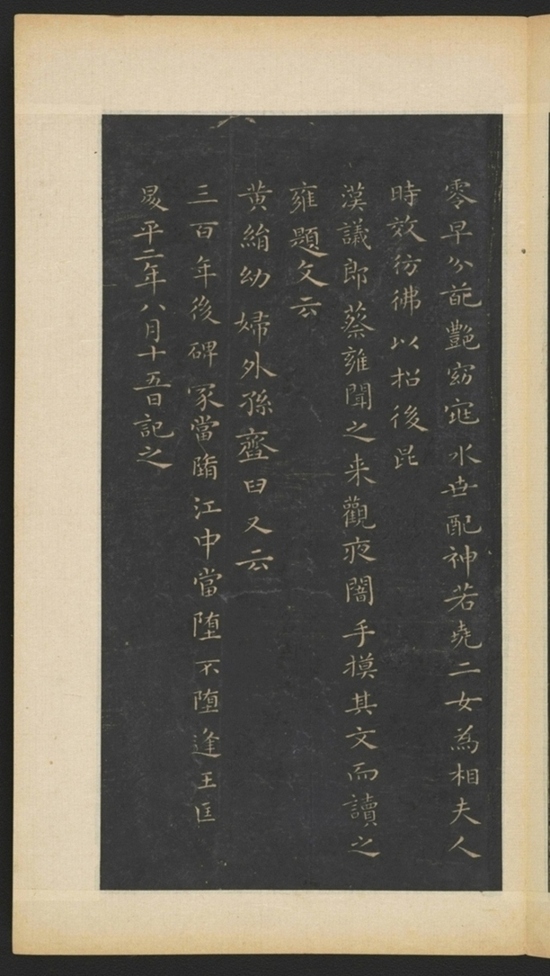 零早分葩艷窈窕水世配神若堯二女為相夫人
時效彷彿以招後昆
漢議郎蔡雍聞之来觀夜闇手摸其文而讀之
雍題文云
黃絹幼婦外孫齏臼又云
三百年後碑冢當墮江中當墮不墮逢王匡
平二年八月十五日記之